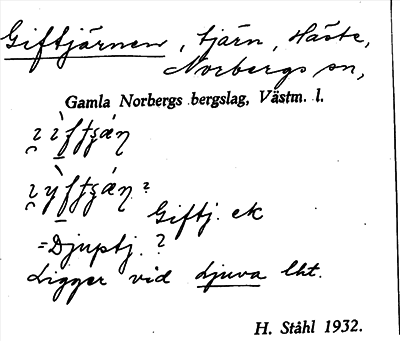 Giftjärnen, tjärn, Häste,
Norbergs sn,
Gamla Norbergs bergslag, Västm. l.
Giftj. ek
=Djuptj. ?
Ligger vid djuva lht.
H. Ståhl 1932.